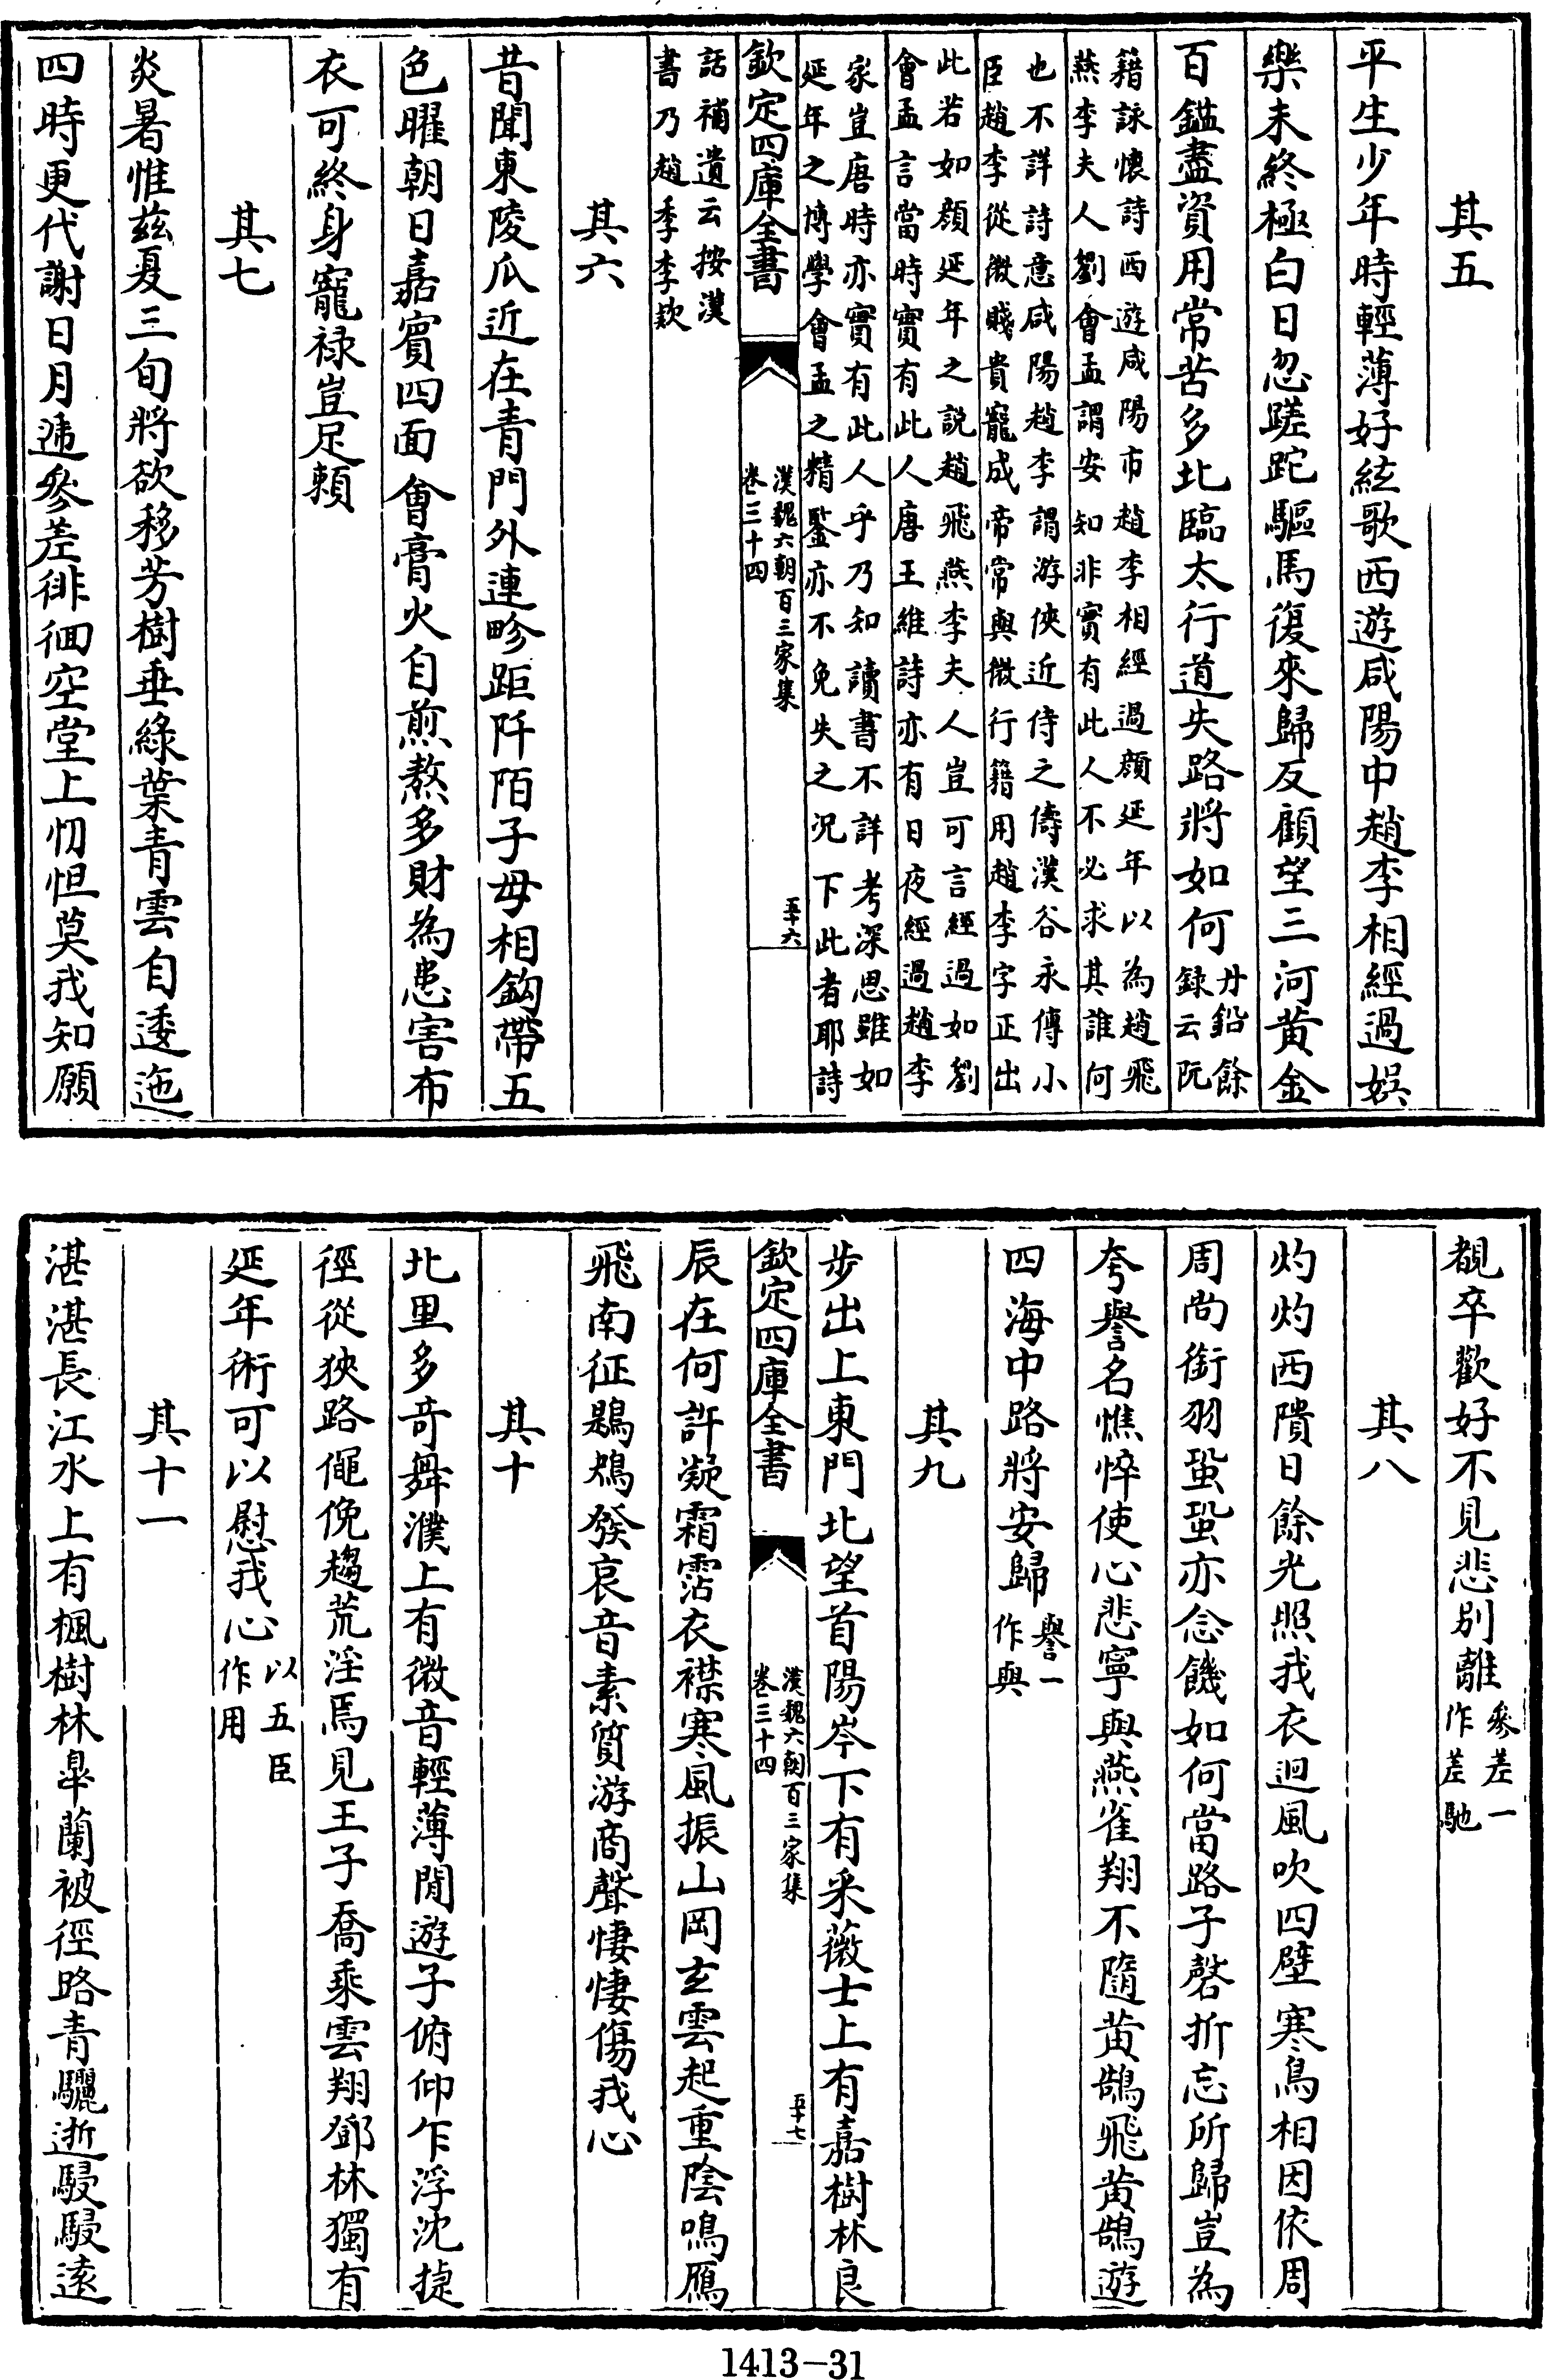 其五
平生少年時輕薄好絃歌西遊咸陽中趙李相經過娛
樂未終極白日忽蹉跎驅馬復來歸反顧望三河黄金
百鎰盡資用常苦多北臨太行道失路將如何丹鉛餘
錄云阮
籍詠懷詩西遊咸陽市趙李相經過顔延年以為趙飛
燕李夫人劉會孟謂安知非實有此人不必求其誰何
也不詳詩意咸陽趙李謂游俠近侍之儔漢谷永傳小
臣趙李從微賤貴寵成帝常與微行籍用趙李字正出
此若如顔延年之説趙飛燕李夫人豈可言經過如劉
會孟言當時實有此人唐王維詩亦有日夜經過趙李
家豈唐時亦實有此人乎乃知讀書不詳考深思雖如
延年之博學會孟之精鑒亦不免失之况下此者耶詩
欽定四庫全書
漢魏六朝百三家集
卷三十四
五十六
話補遺云按漢
書乃趙季李欵
其六
昔聞東陵瓜近在青門外連畛距阡陌子母相鈎帶五
色曜朝日嘉賓四面會膏火自煎熬多財為患害布
衣可終身寵禄豈足賴
其七
炎暑惟兹夏三旬將欲移芳樹垂綠葉青雲自逶迤
四時更代謝日月逓參差徘徊空堂上忉怛莫我知願
覩卒歡好不見悲別離參差一
作差馳
其八
灼灼西隤日餘光照我衣迴風吹四壁寒鳥相因依周
周尚銜羽蛩蛩亦念饑如何當路子磬折忘所歸豈為
夸譽名憔悴使心悲寧與燕雀翔不隨黄鵠飛黄鵠遊
四海中路將安歸譽一
作與
其九
步出上東門北望首陽岑下有采薇士上有嘉樹林良
欽定四庫全書
漢魏六朝百三家集
卷三十四
五十七
辰在何許凝霜霑衣襟寒風振山岡玄雲起重陰鳴鴈
飛南征鶗鴂發哀音素質游商聲悽悽傷我心
其十
北里多奇舞濮上有微音輕薄閒遊子俯仰乍浮沈捷
徑從狹路僶俛趨荒淫焉見王子喬乘雲翔鄧林獨有
延年術可以慰我心以五臣
作用
其十一
湛湛長江水上有楓樹林臯蘭被徑路青驪逝駸駸遠
1413-31